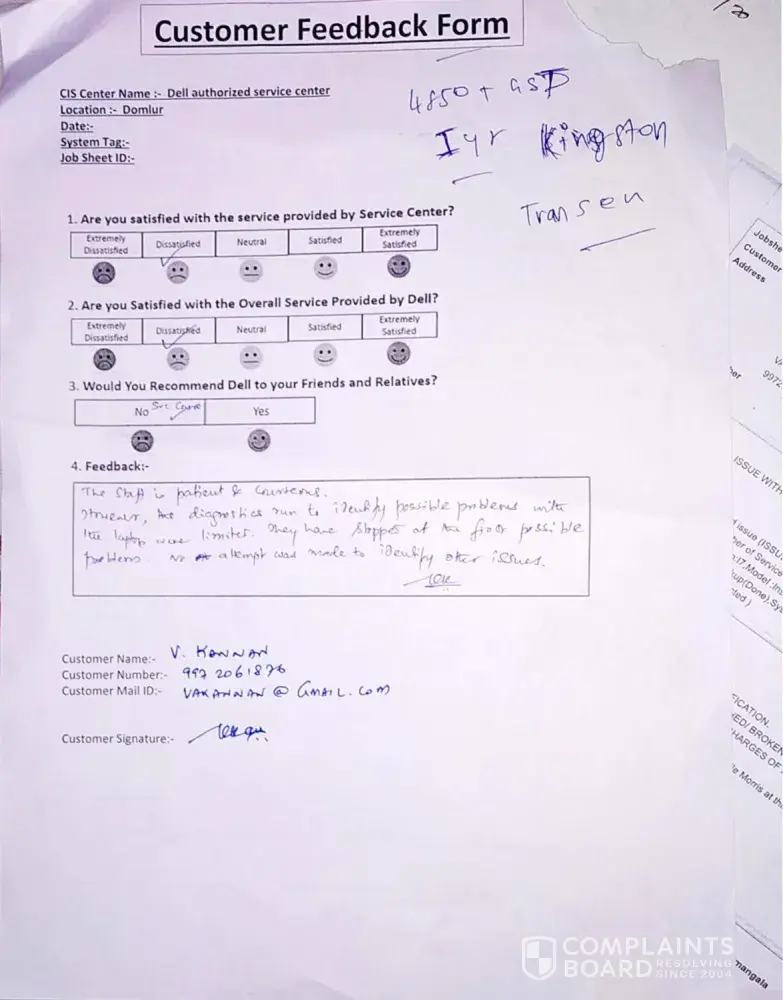 /20
Customer Feedback Form
CIS Center Name :- Dell authorized service center
Location :- Domlur
Date:-
System Tag:-
Job Sheet ID:-
4850 + GST
1 yr Kingston
Transen
1. Are you satisfied with the service provided by Service Center?
Extremely Dissatisfied Dissatisfied Neutral Satisfied Extremely Satisfied
2. Are you Satisfied with the Overall Service Provided by Dell?
Extremely Dissatisfied Dissatisfied Neutral Satisfied Extremely Satisfied
3. Would You Recommend Dell to your Friends and Relatives?
No Yes
4. Feedback:-
The staff is patient & courteous.
However, the diagnostics run to identify possible problems with
the laptop were limited. They have stopped at the first possible
problem. No attempt was made to identify other issues.
Customer Name:- V. KANNAN
Customer Number:- 997 2061876
Customer Mail ID:- VAKANNAN @ GMAIL.COM
Customer Signature:-
Jobshe
Customer
Address
9972
ISSUE WITH
issue (ISSU
er of Service
:17,Model :Ins
kup(Done),Sys
cted )
FICATION.
ED/ BROKEN
HARGES OF
le Morris at th
mangala
COMPLAINTS
BOARD RESOLVING
SINCE 2004